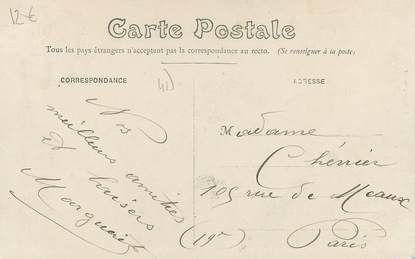 12€
Carte Postale
Tous les pays étrangers n'acceptent pas la correspondance au recto. (Se renseigner à la poste)
CORRESPONDANCE
41)
ADRESSE
Nos
meilleurs amitiés
et baisers
Marguerite
Madame
Chérier
105 rue de Meaux
(19e)
Paris